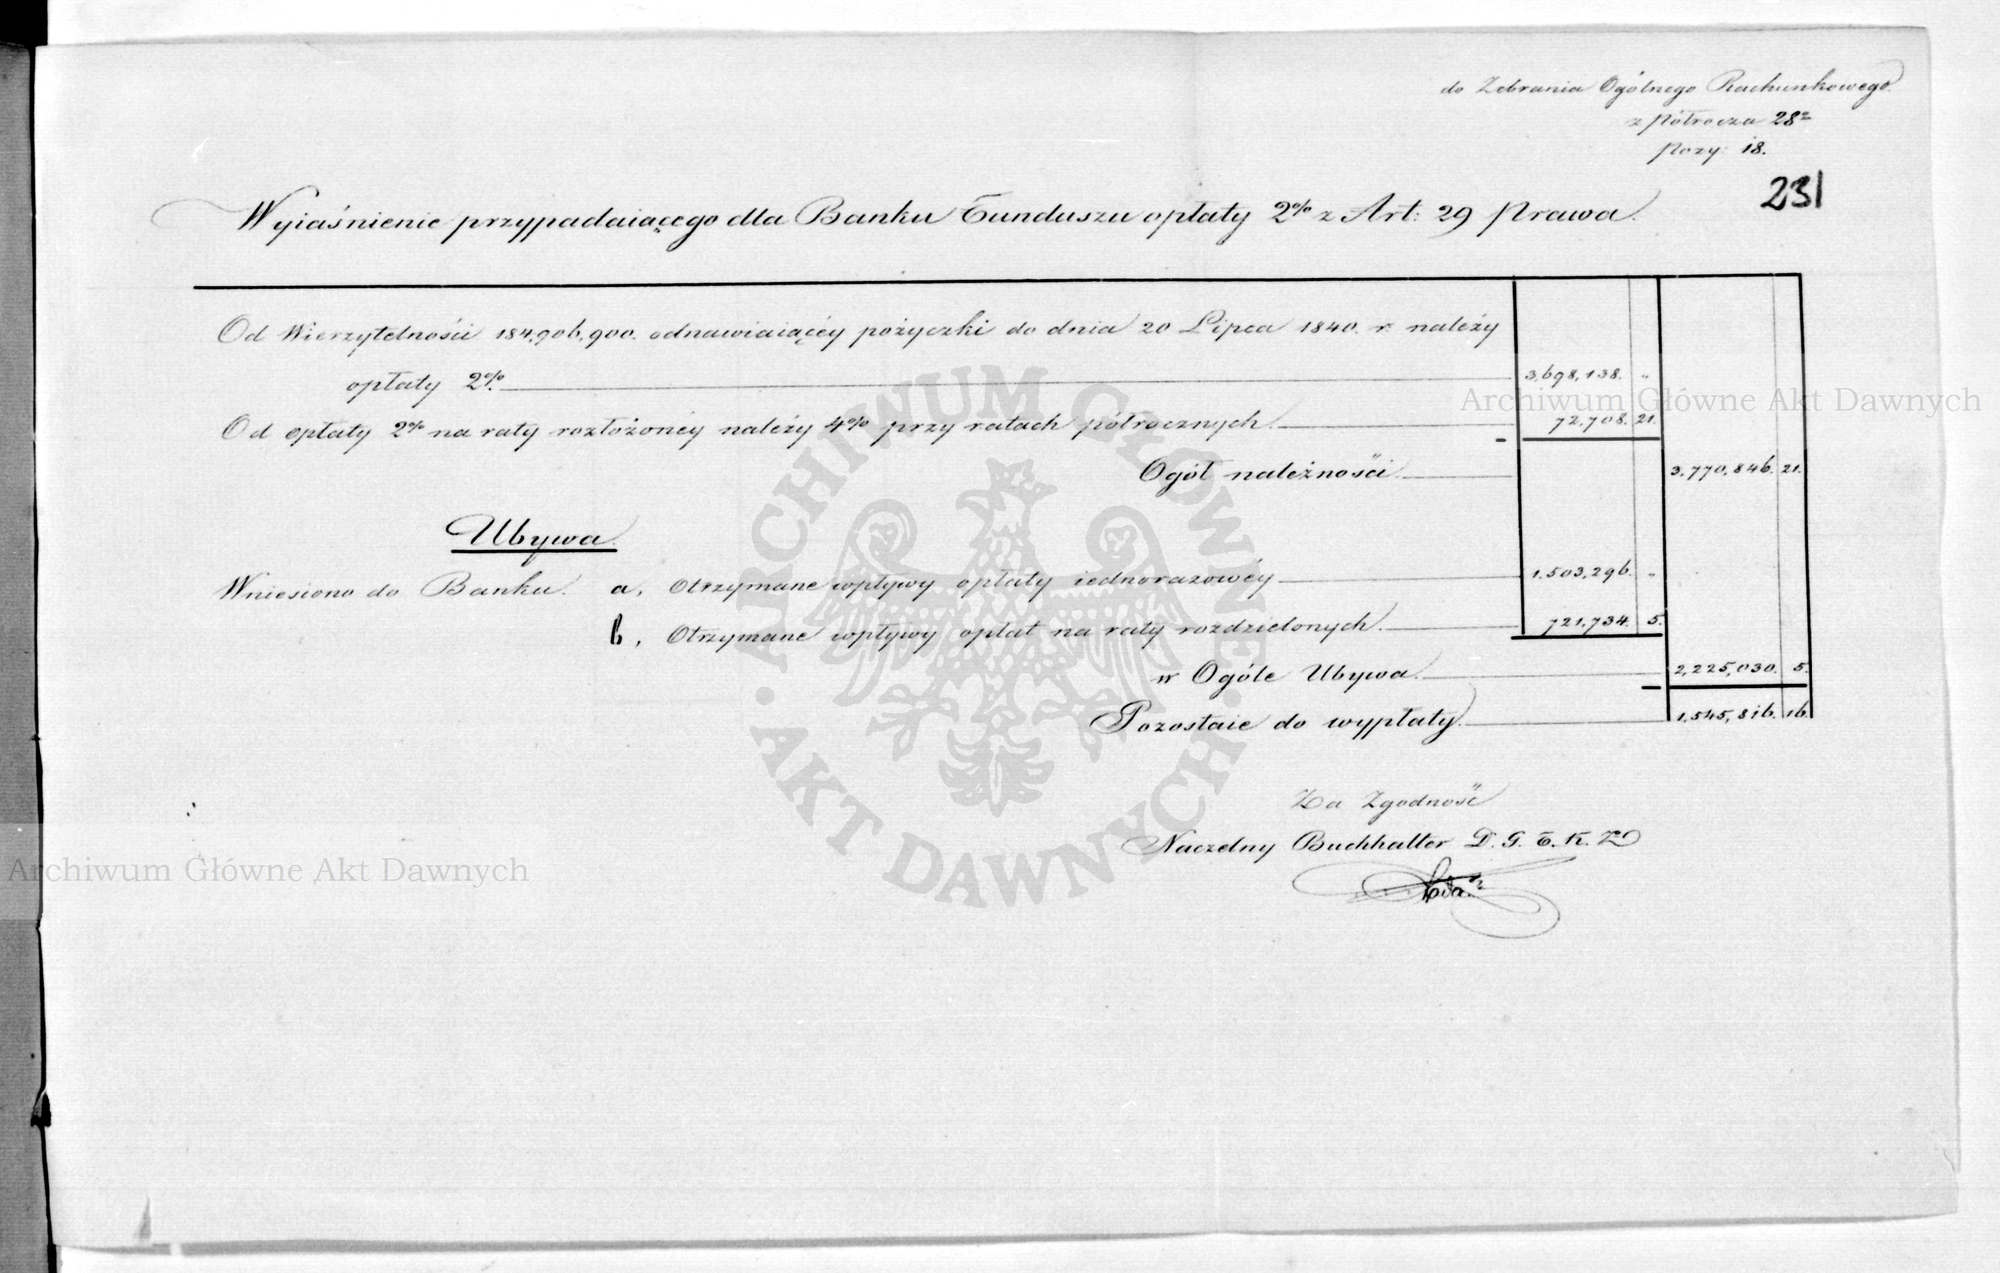 do Zebrania Ogólnego Rachunkowego
z Półrocza 28º
Pozy: 18.
231
Wyiaśnienie przypadaiącego dla Banku Funduszu opłaty 2% z Art: 29 Prawa.
Od Wierzytelności 184,906,900. odnawiaiącéy pożyczki do dnia 20 Lipca 1840. r. należy
opłaty 2% 3,698,138. „
Od opłaty 2% na raty rozłożonéy należy 4% przy ratach półrocznych. 72,708. 21.
Ogół należności 3,770,846. 21.
Ubywa.
Wniesiono do Banku. a, Otrzymane wpływy opłaty iednorazowéy 1,503,296. „
b, Otrzymane wpływy opłat na raty rozdzielonych. 721,734. 5.
w Ogóle Ubywa. 2,225,030. 5.
Pozostaie do wypłaty. 1,545,816. 16.
Za Zgodność
Naczelny Buchhalter D. G. T. K. Z
ARCHIWUM GŁÓWNE
AKT DAWNYCH
Archiwum Główne Akt Dawnych
Archiwum Główne Akt Dawnych